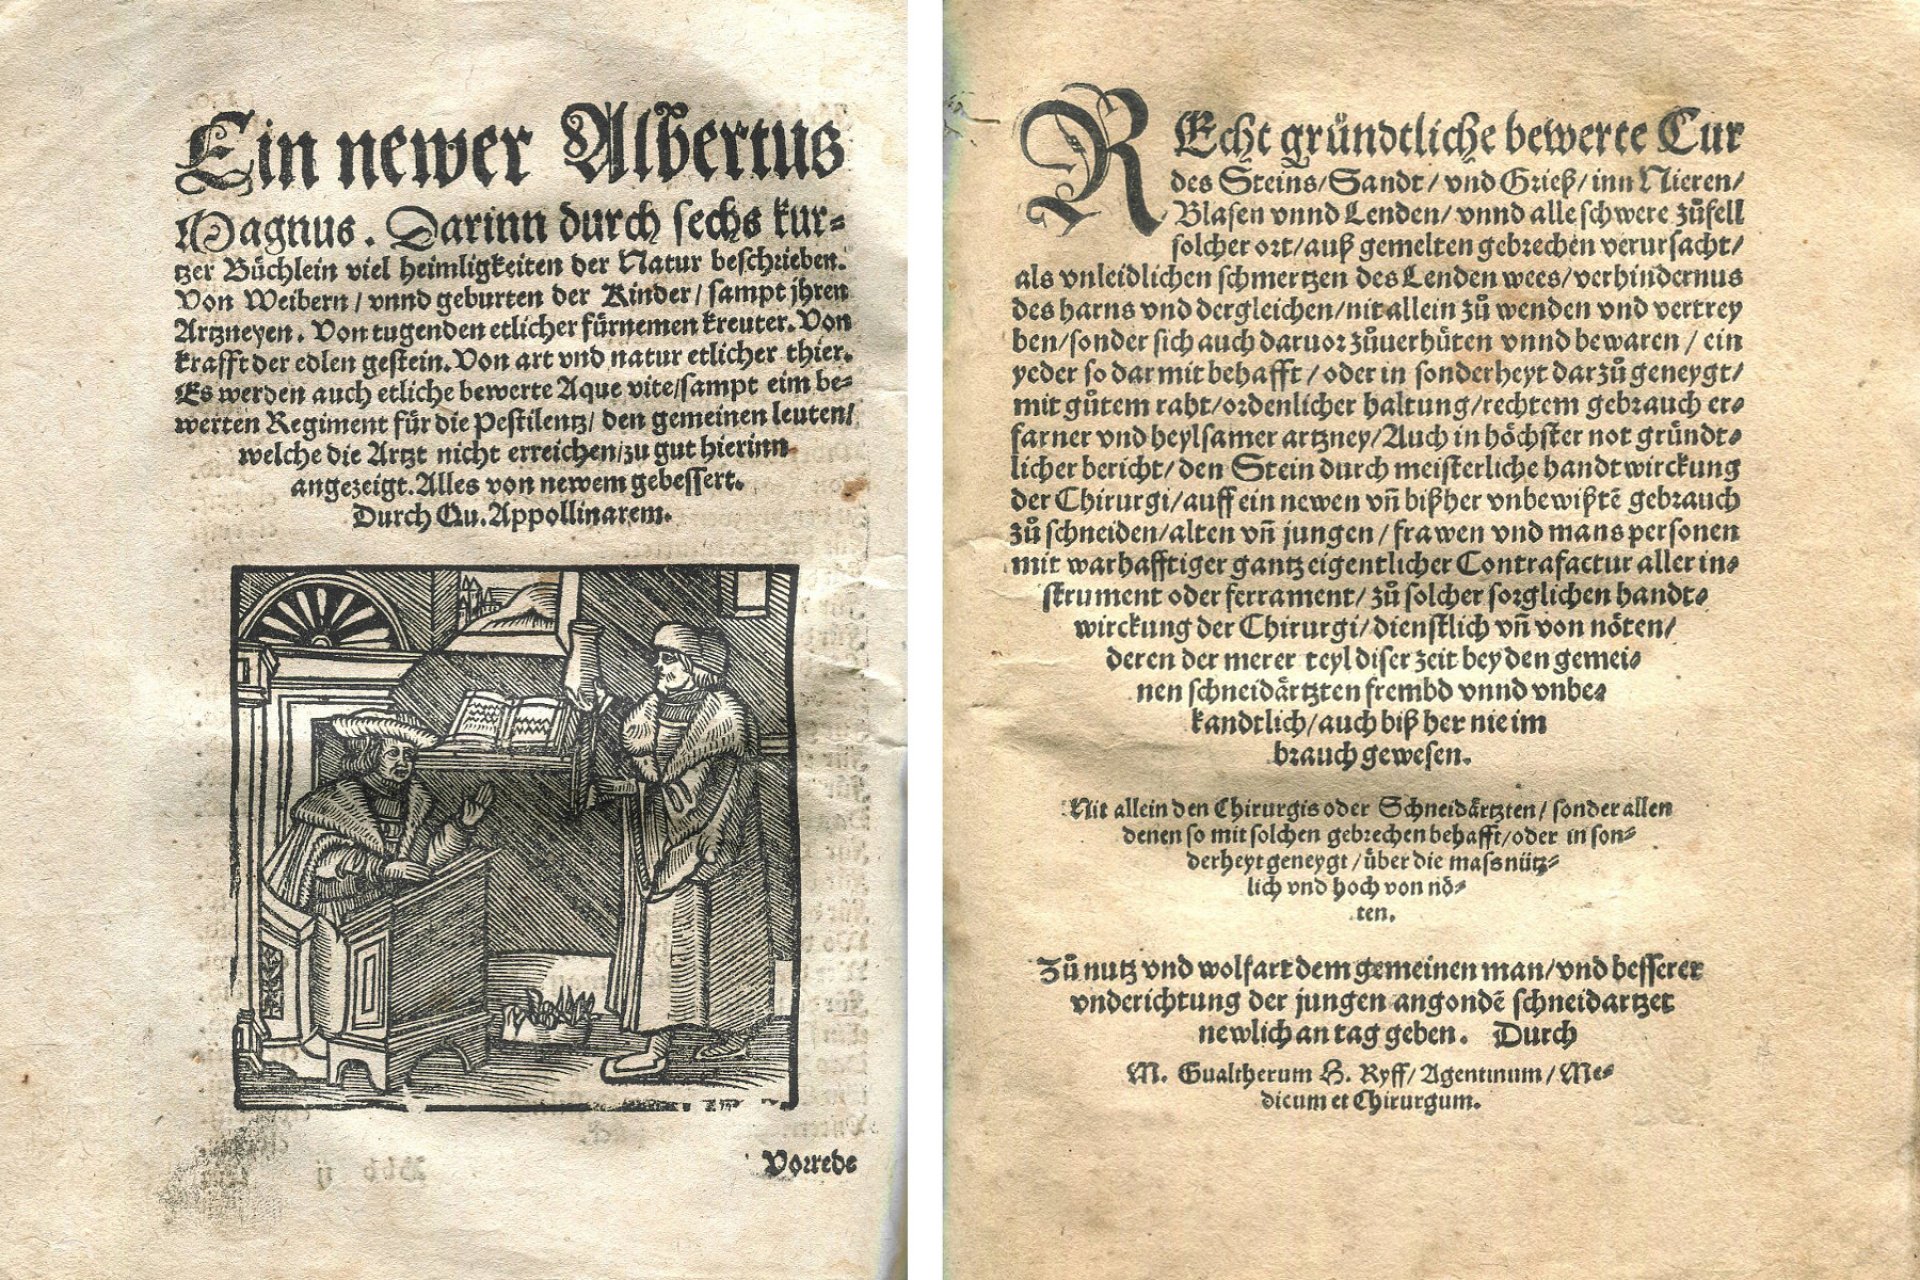 Ein newer Albertus
Magnus. Darinn durch sechs kur-
tzer Büchlein viel heimligkeiten der Natur beschrieben.
Von Weibern / vnnd geburten der Kinder / sampt jhren
Artzneyen. Von tugenden etlicher fürnemen kreuter. Von
krafft der edlen gestein. Von art vnd natur etlicher thier.
Es werden auch etliche bewerte Aque vite/sampt eim be-
werten Regiment für die Pestilentz/ den gemeinen leuten/
welche die Artzt nicht erreichen/zu gut hierinn
angezeigt. Alles von newem gebessert.
Durch Qu. Appollinarem.
Vorrede
REcht gründtliche bewerte Cur
des Steins/Sandt / vnd Grieß/ inn Nieren/
Blasen vnnd Lenden/ vnnd alle schwere zůfell
solcher ort/auß gemelten gebrechen verursacht/
als vnleidlichen schmertzen des Lenden wees/verhindernus
des harns vnd dergleichen/nit allein zů wenden vnd vertrey
ben/sonder sich auch daruor zůuerhüten vnnd bewaren / ein
yeder so darmit behafft / oder in sonderheyt darzů geneygt/
mit gůtem raht/ordenlicher haltung/rechtem gebrauch er-
farner vnd heylsamer artzney/Auch in höchster not gründt-
licher bericht/den Stein durch meisterliche handtwirckung
der Chirurgi/auff ein newen vñ bißher vnbewißtẽ gebrauch
zů schneiden/alten vñ jungen / frawen vnd mans personen
mit warhafftiger gantz eigentlicher Contrafactur aller in-
strument oder ferrament/ zů solcher sorglichen handt-
wirckung der Chirurgi/dienstlich vñ von nöten/
deren der merer teyl diser zeit bey den gemei-
nen schneidärtzten frembd vnnd vnbe-
kandtlich/auch biß her nie im
brauch gewesen.
Nit allein den Chirurgis oder Schneidärtzten/ sonder allen
denen so mit solchen gebrechen behafft/oder in son-
derheyt geneygt / über die mass nütz-
lich vnd hoch von nö-
ten.
Zů nutz vnd wolfart dem gemeinen man/vnd besserer
vnderichtung der jungen angondẽ schneidartzet
newlich an tag geben. Durch
M. Gualtherum H. Ryff/ Agentinum/ Me-
dicum et Chirurgum.